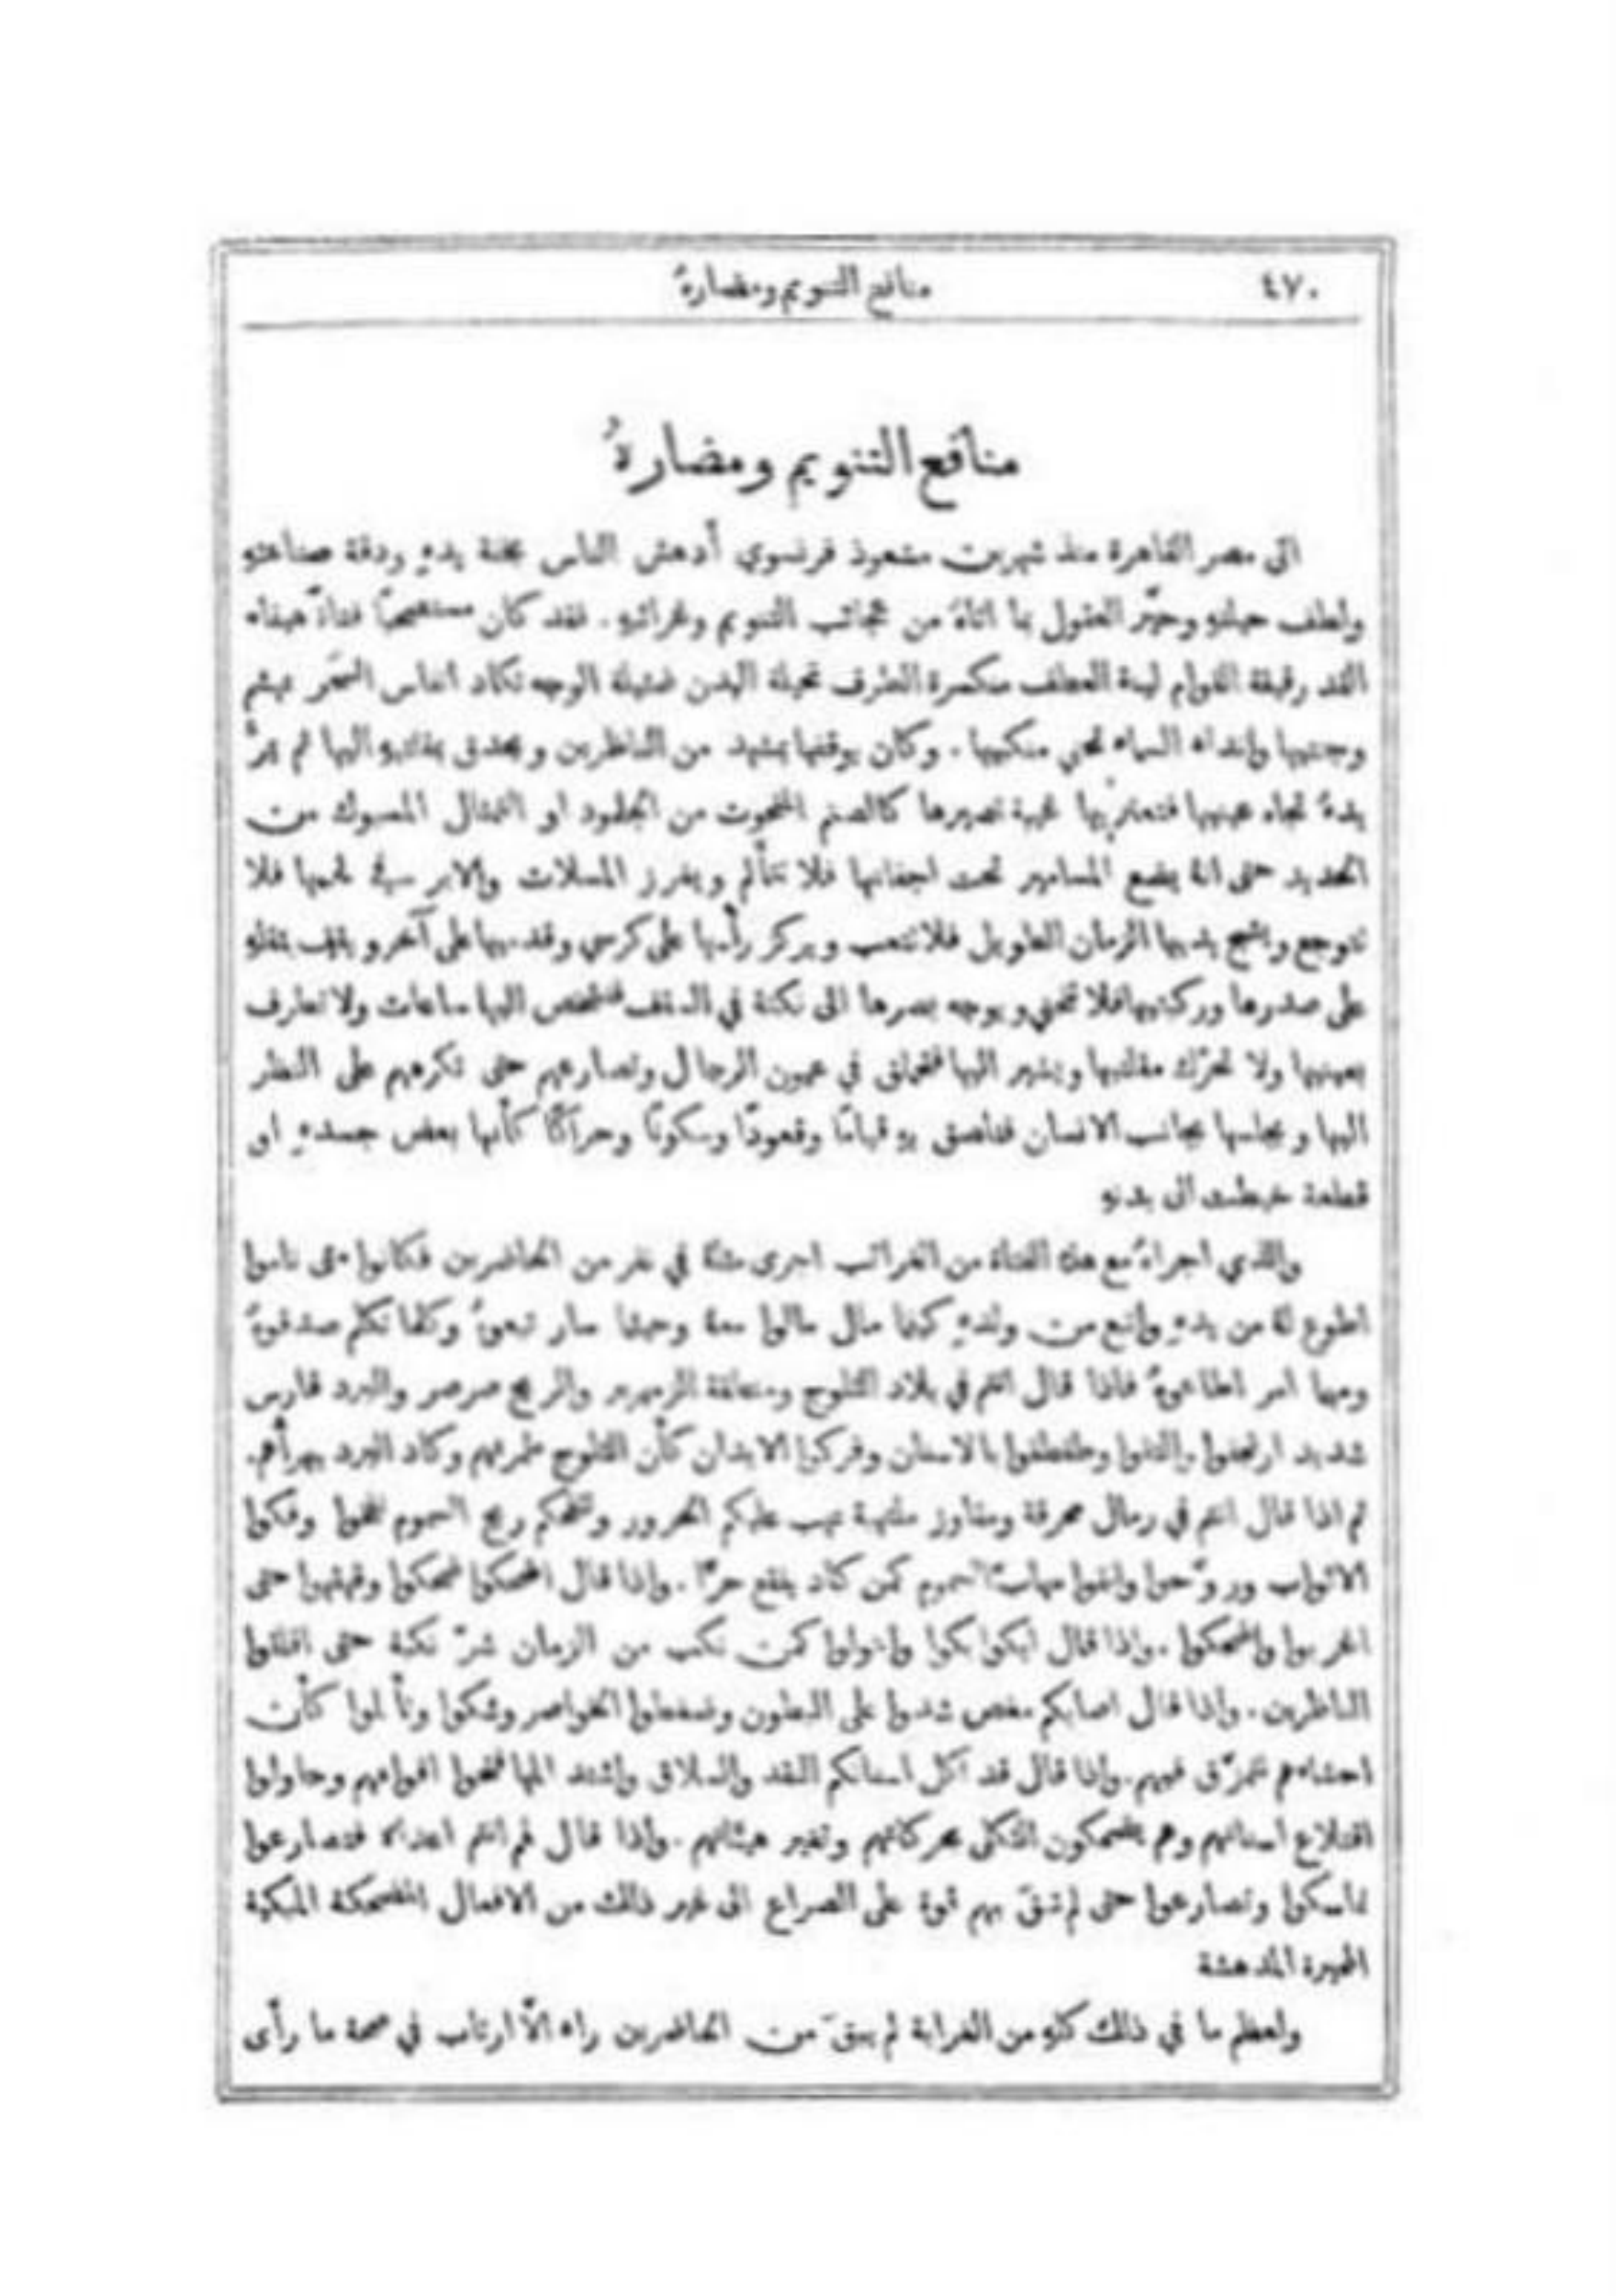 ٤٧٠
منافع التنويم ومضارهُ
منافع التنويم ومضارهُ
اتى مصر القاهرة منذ شهرين مشعوذ فرنسوي أدهش الناس بخفة يدهِ ودقة صناعتهِ
ولطف حيلهِ وحيّر العقول بما اتاهُ من عجائب التنويم وغرائبهِ . فقد كان مستصحبًا فتاةً هيفاء
القد رقيقة القوام لينة العطف منكسرة الطرف نحيلة البدن ضئيلة الوجه تكاد انفاس السَحَر تهشم
وجنتيها وانداء السماء تحني منكبيها . وكان يوقفها بمشهد من الناظرين ويحدق بمقلتيهِ اليها ثم يمرُّ
يدهُ تجاه عينيها فتعتريها غيبة تصيرها كالصنم المنحوت من الجلمود او التمثال المسبوك من
الحديد حتى انهُ يضع المسامير تحت اجفانها فلا تتألم ويغرز المسلات والابر في لحمها فلا
تتوجع ويشبح يديها الزمان الطويل فلا تتعب ويركز رأسها على كرسي وقدميها على آخر ويقف بثقلهِ
على صدرها وركبتيها فلا تنحني ويوجه بصرها الى نكتة في السقف فتشخص اليها ساعات ولا تطرف
بعينيها ولا تحرّك مقلتيها ويشير اليها فتحملق في عيون الرجال وتصارعهم حتى تكرههم على النظر
اليها ويجلسها بجانب الانسان فتلصق بهِ قيامًا وقعودًا وسكونًا وحراكًا كأنها بعض جسدهِ او
قطعة خيطت الى بدنهِ
والذي اجراهُ مع هذه الفتاة من الغرائب اجرى مثلهُ في نفر من الحاضرين فكانوا متى ناموا
اطوع لهُ من يدهِ واتبع من ولدهِ كيفما مال مالوا معهُ وحيثما سار تبعوهُ وكلما تكلم صدقوهُ
ومهما امر اطاعوهُ فاذا قال انتم في بلاد الثلوج ومنطقة الزمهرير والريح صرصر والبرد قارس
شديد ارتجفوا والتفوا وطقطقوا بالاسنان وفركوا الابدان كأن الثلوج غمرتهم وكاد البرد يهرأهم.
ثم اذا قال انتم في رمال محرقة ومفاوز ملتهبة تهب عليكم الحرور وتلفحكم ريح السموم نفخوا وفكوا
الاثواب وروّحوا واتقوا مهابّ السموم كمن كاد ينقع حرًّا . واذا قال اضحكوا ضحكوا وقهقهوا حتى
اغربوا واضحكوا . واذا قال ابكوا بكوا وانولوا كمن نكب من الزمان شرّ نكبة حتى اقلقوا
الناظرين . واذا قال اصابكم مغص شدوا على البطون وضغطوا الخواصر وشكوا وتألموا كأن
احشاءهم تتمزّق فيهم . واذا قال قد اكل اسنانكم القد والسلاق واشتد المها فتحوا افواههم وحاولوا
اقتلاع اسنانهم وهم يضحكون الثكلى بحركاتهم وتغير هيئاتهم . واذا قال لهم انتم اعداء فتصارعوا
تماسكوا وتصارعوا حتى لم تبقَ بهم قوة على الصراع الى غير ذلك من الافعال المضحكة المبكية
المحيرة المدهشة
ولعظم ما في ذلك كلهِ من الغرابة لم يبقَ من الحاضرين راء الّا ارتاب في صحة ما رأى